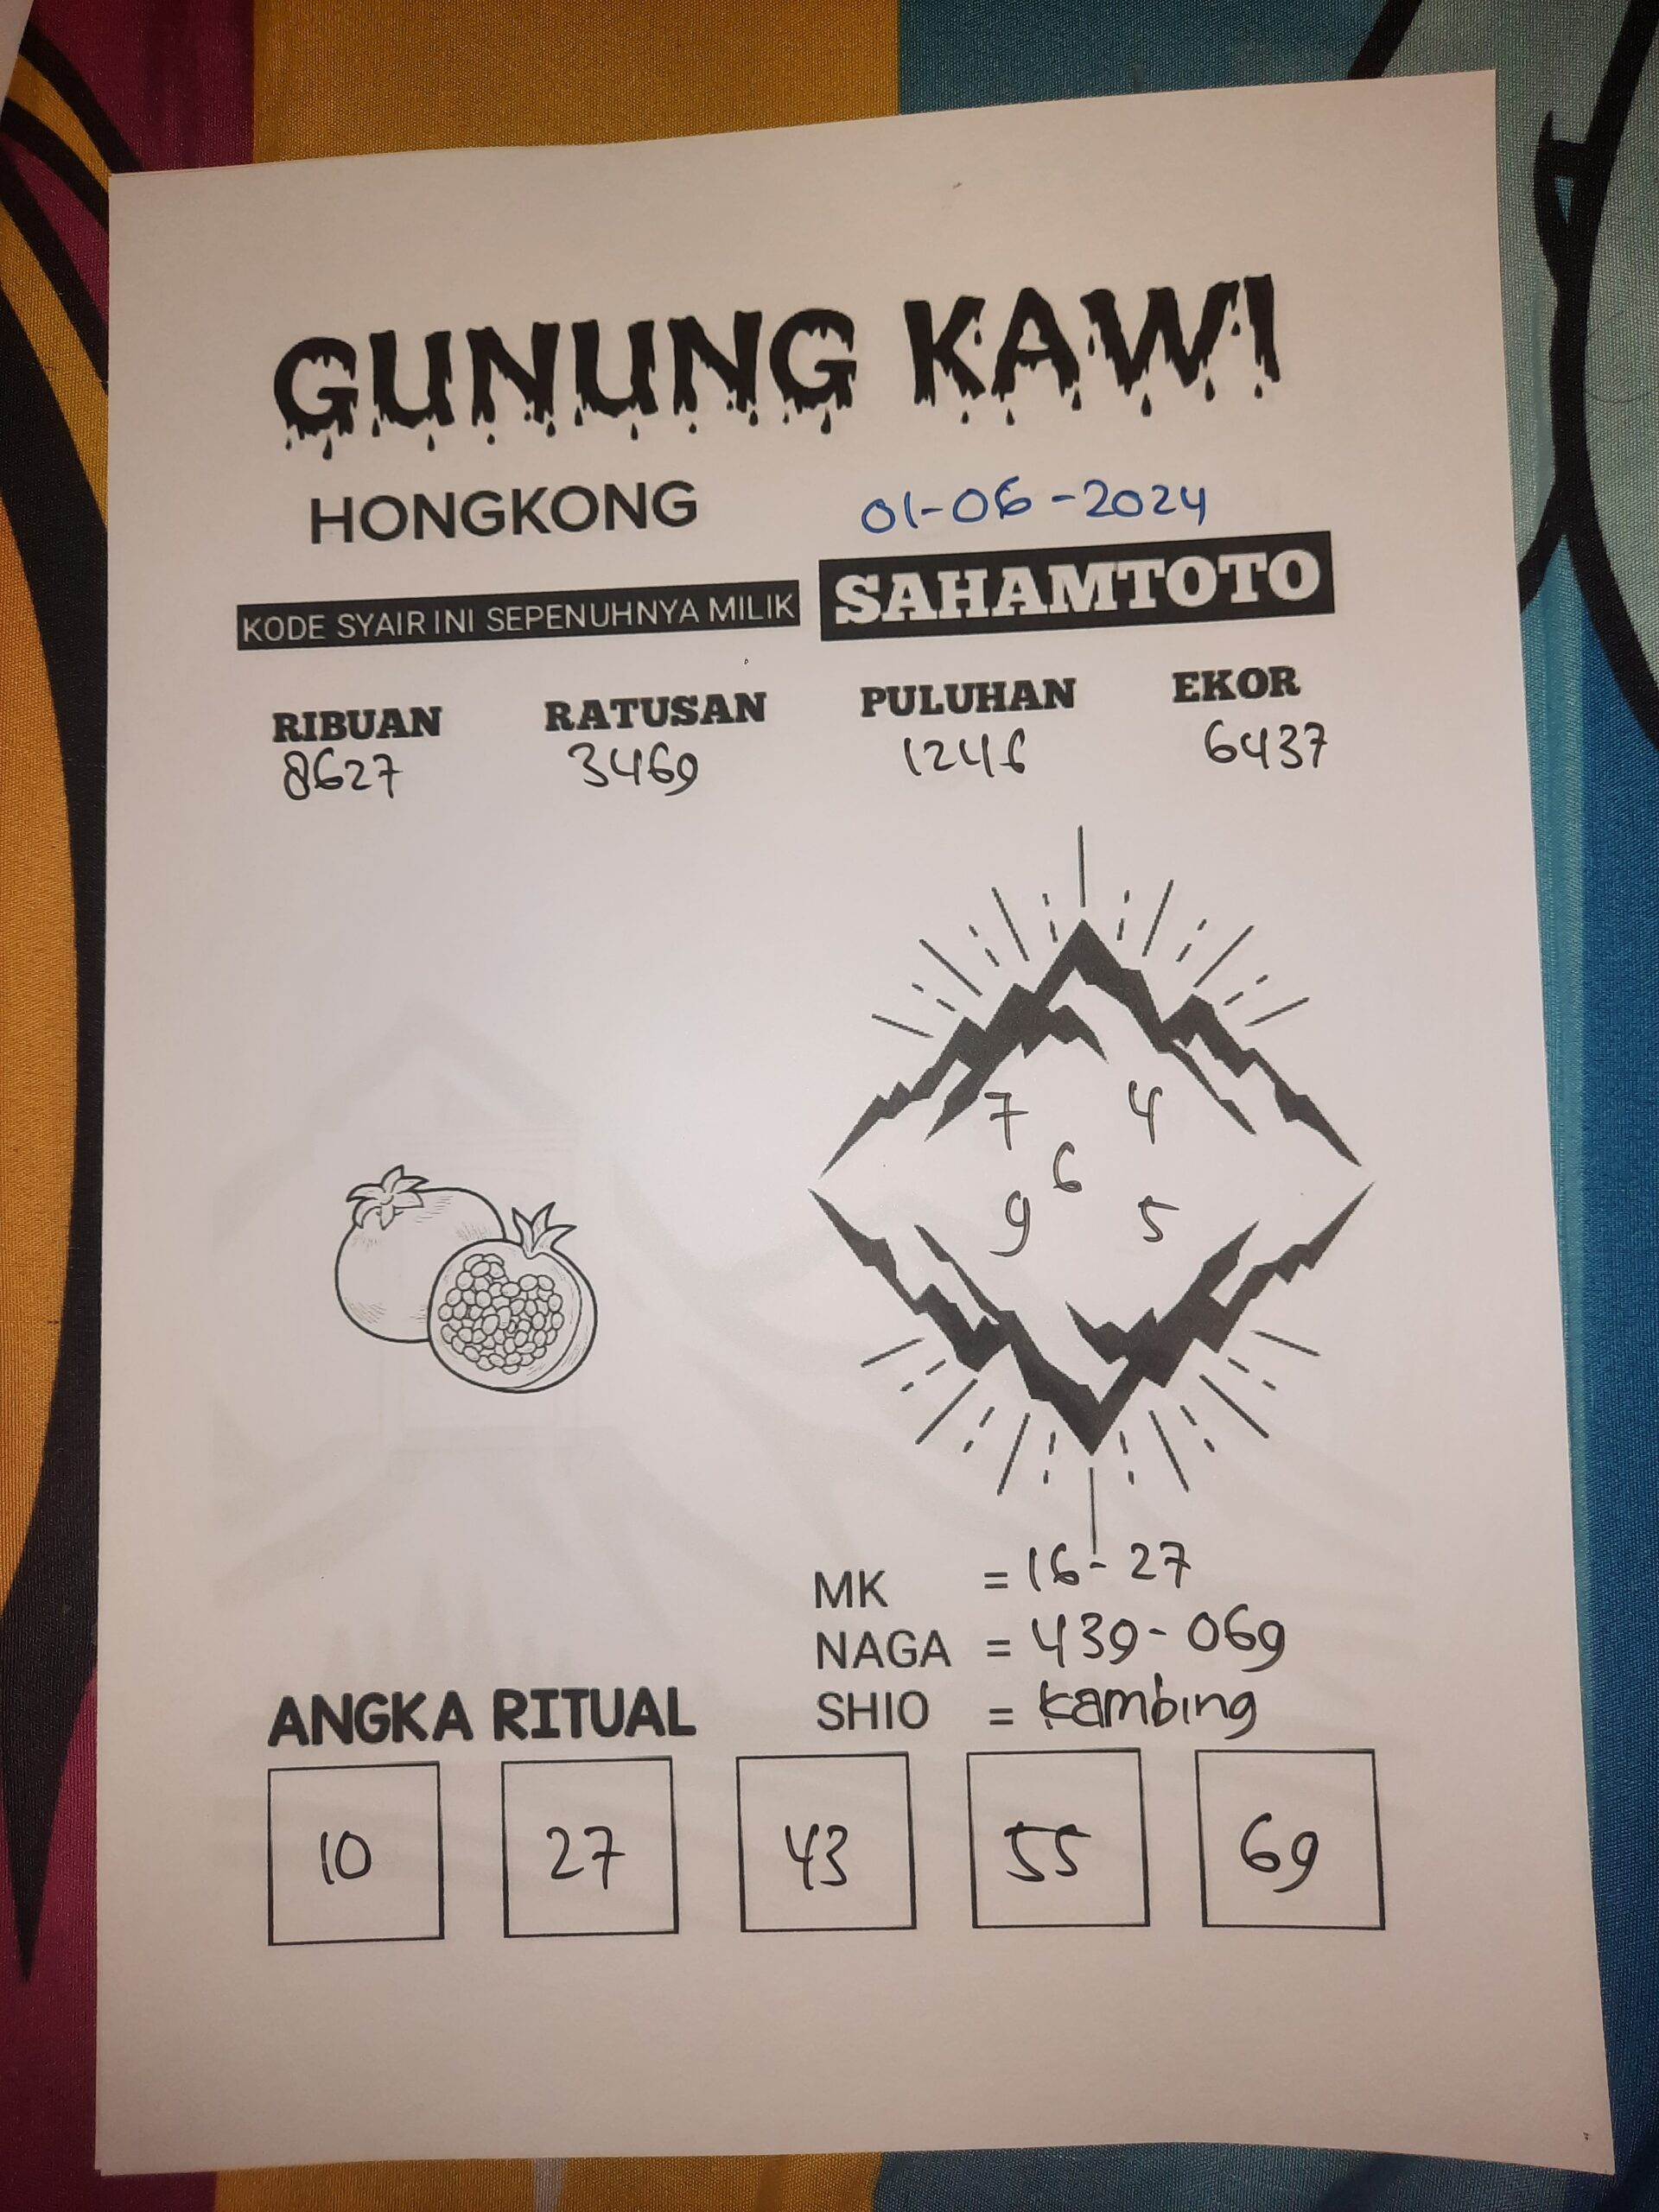 GUNUNG KAWI
HONGKONG 01-06-2024
KODE SYAIR INI SEPENUHNYA MILIK SAHAMTOTO
RIBUAN RATUSAN PULUHAN EKOR
8627 3469 1246 6437
7 4
6
9 5
MK = 16-27
NAGA = 439-069
SHIO = Kambing
ANGKA RITUAL
10 27 43 55 69